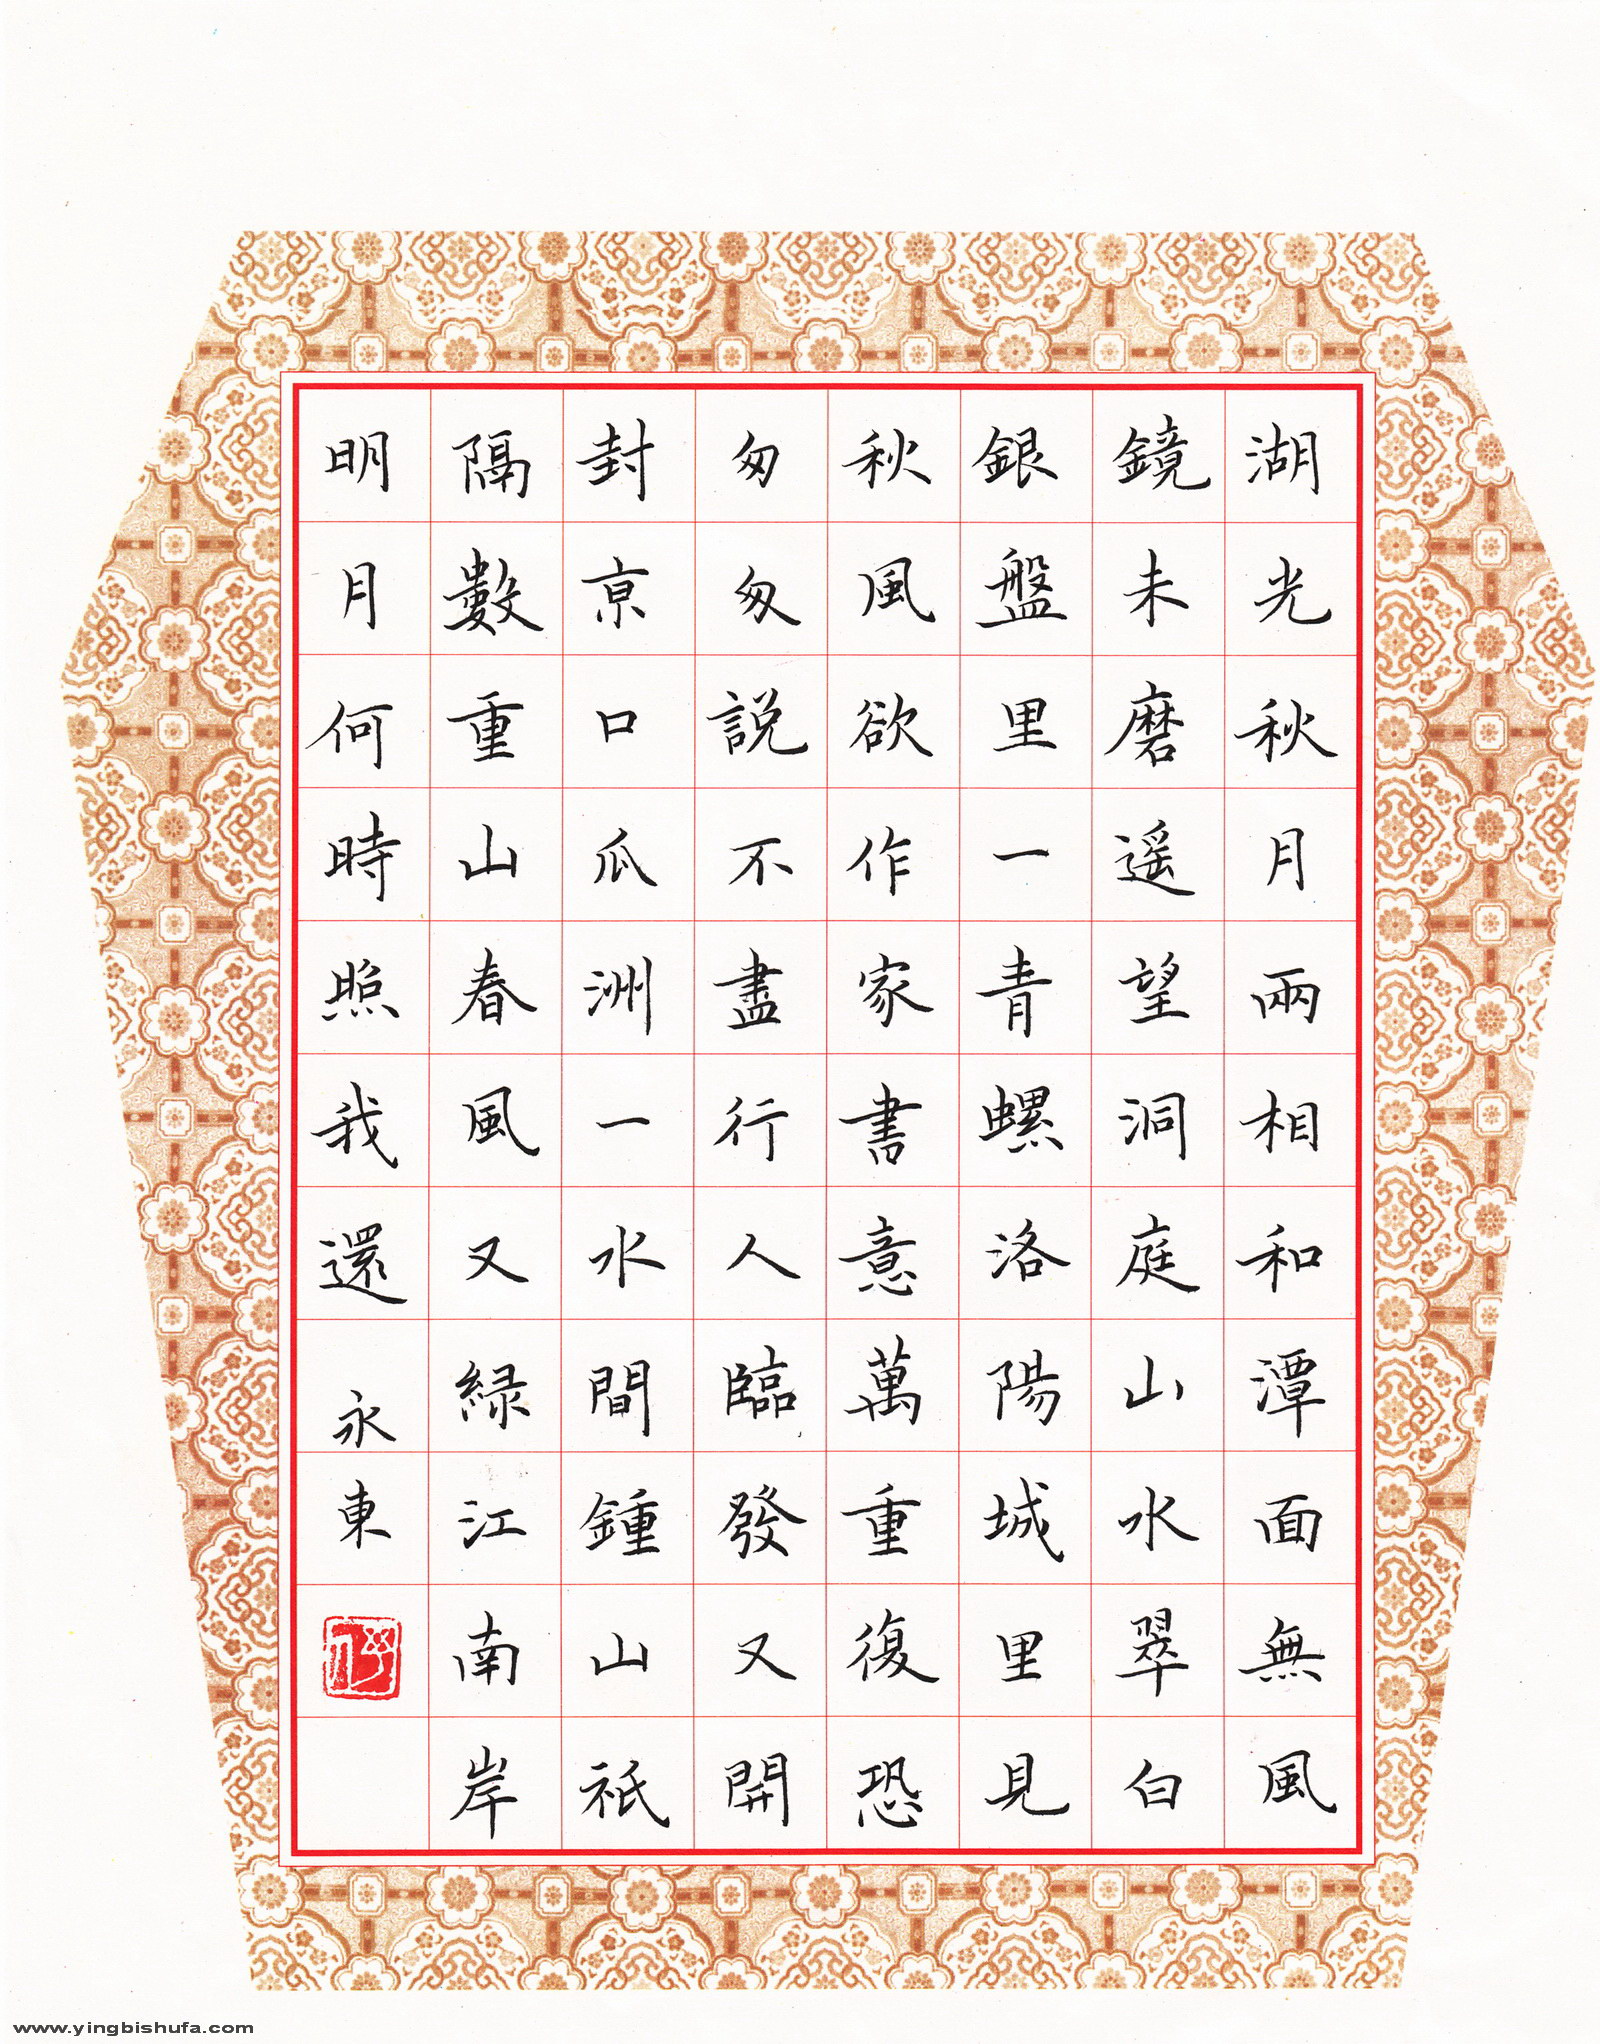 湖光秋月兩相和潭面無風
鏡未磨遥望洞庭山水翠白
銀盤里一青螺洛陽城里見
秋風欲作家書意萬重復恐
匆匆説不盡行人臨發又開
封京口瓜洲一水間鍾山祇
隔數重山春風又緑江南岸
明月何時照我還永東
www.yingbishufa.com